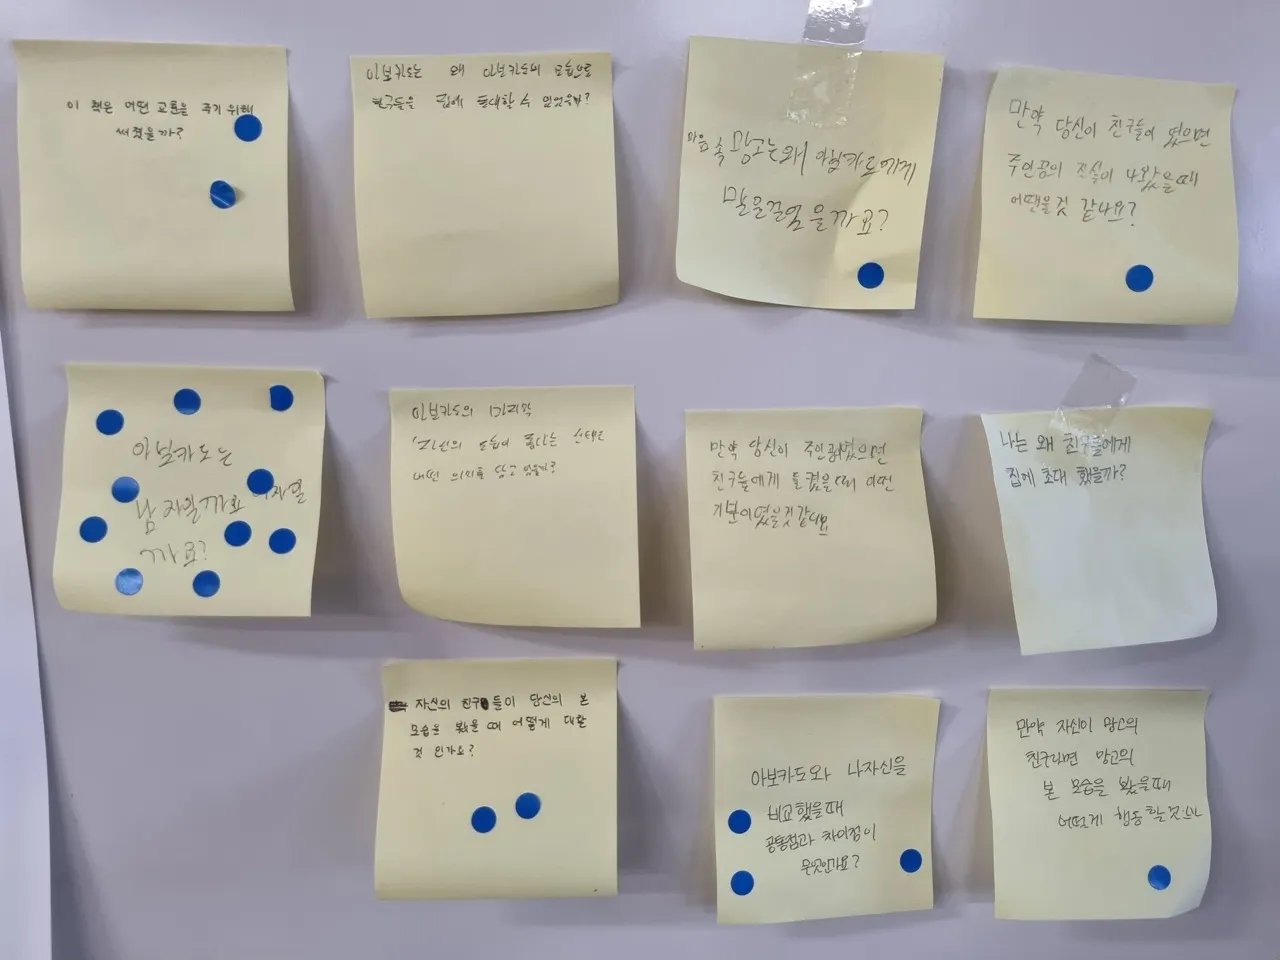 이 책은 어떤 교훈을 주기 위해
써졌을까?
아보카도는 왜 아보카도의 모습으로
친구들을 집에 초대할 수 있었을까?
마음속 망고는왜 아보카도에게
말을걸었을까요?
만약 당신이 친구들이 였으면
주인공의 진실이 나왔을때
어땠을것 같나요?
아보카도는
남자일까요 여자일
까요?
아보카도의 마지막
자신의 모습이 좋다는
어떤 의미를 담고 있을까?
만약 당신이 주인공이였으면
친구들에게 들켰을때 어떤
기분이였을것같나요
나는 왜 친구들에게
집에 초대 했을까?
자신의 친구들이 당신의 본
모습을 봤을 때 어떻게 대할
것 인가요?
아보카도와 나자신을
비교했을때
공통점과 차이점이
무엇인가요?
만약 자신이 망고의
친구라면 망고의
본 모습을 봤을때
어떻게 행동할것